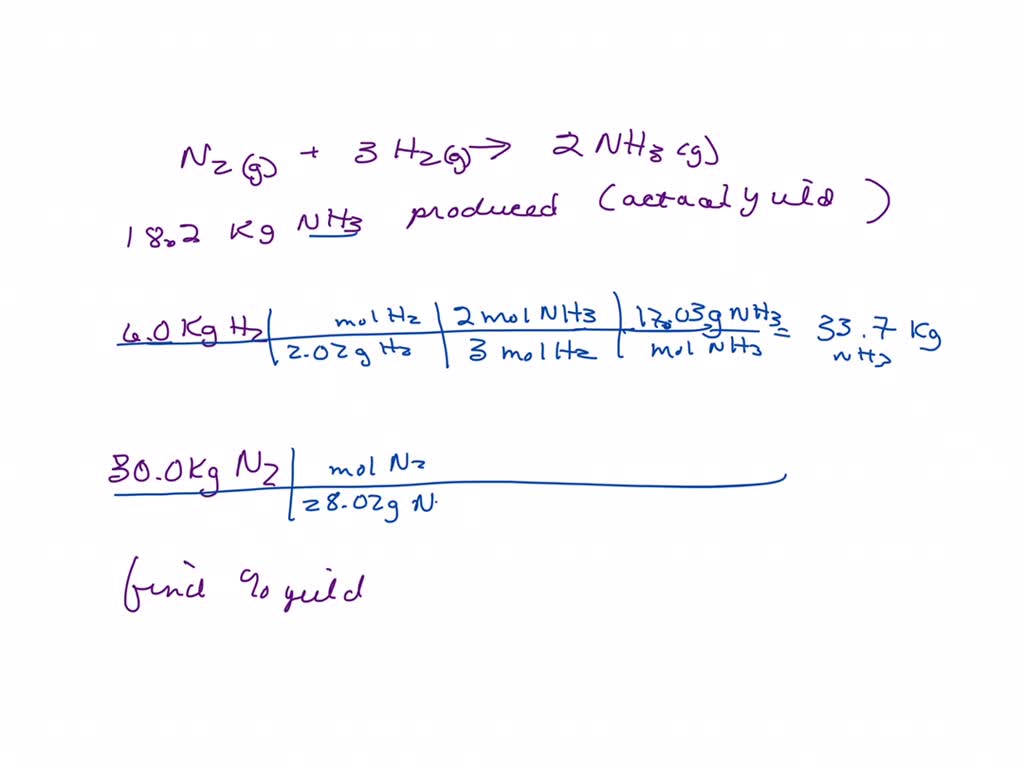 N2(g) + 3 H2(g) → 2 NH3(g)
18.2 Kg NH3 produced (actual yield)
6.0 Kg H2 | mol H2 | 2 mol NH3 | 17.03g NH3 = 33.7 Kg
2.02g H2 | 3 mol H2 | mol NH3 NH3
30.0Kg N2 | mol N2
28.02g N
find % yield